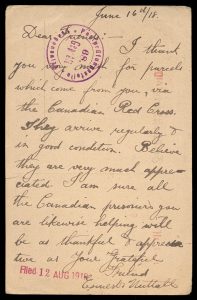 June 16th/18.
Dear
I thank
you very much for parcels
which come from you, via
the Canadian Red Cross.
They arrive regularly &
in good condition. Believe
they are very much appre-
ciated. I am sure all
the Canadian prisoners you
are likewise helping will
be as thankful & apprecia-
tive as Your Grateful
Friend
Ernest Nuttall
Filed 12 AUG 1918